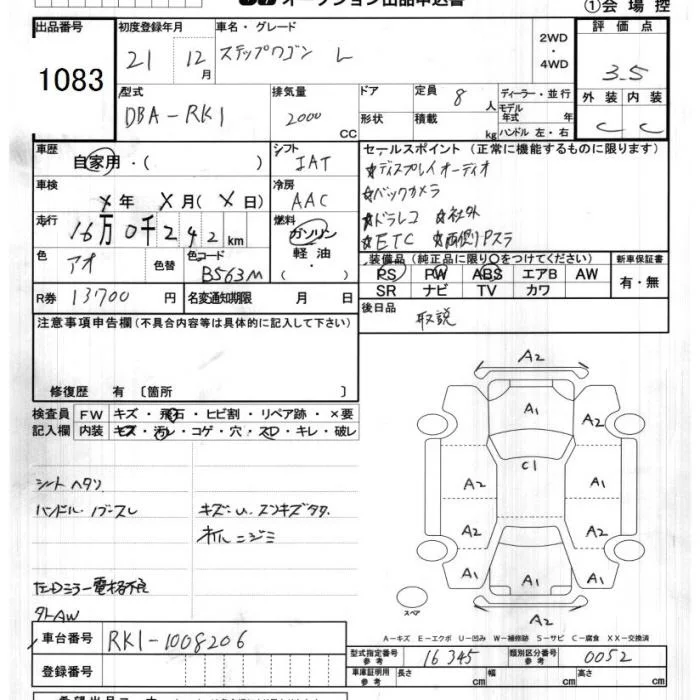 オークション出品申込書 ①会場控
出品番号 1083
初度登録年月 21 12月
車名・グレード ステップワゴン L
2WD・4WD
評価点 3.5
外装 C 内装 C
型式 DBA-RK1
排気量 2000 CC
ドア 形状
定員 8人 積載 kg
ディーラー・並行
モデル年式 年
ハンドル 左・右
車歴 自家用・( )
シフト IAT
セールスポイント(正常に機能するものに限ります)
☆ディスプレイオーディオ
☆バックカメラ
☆ドラレコ ☆社外
☆ETC ☆両側Pスラ
車検 X年 X月(X日)
冷房 AAC
走行 16万0千242km
燃料 ガソリン・軽油・( )
色 アオ 色替
色コード B563M
装備品(純正品に限り○をつけてください) 新車保証書
PS PW ABS エアB AW 有・無
SR ナビ TV カワ
R券 13700円 名変通知期限 月 日
後日品 取説
注意事項申告欄(不具合内容等は具体的に記入して下さい)
修復歴 有〔箇所 〕
検査員記入欄
FW キズ・飛石・ヒビ割・リペア跡・×要
内装 キズ・汚レ・コゲ・穴・スレ・キレ・破レ
シートヘタリ
ハンドル・ノブスレ キズ・U.スンキズタタ
オイルニジミ
左Dミラー電格不良
外AW
A2
A1 A2
C1
A2 A1
A2 A2
A1 A1 A1
A2
スペア
A-キズ E-エクボ U-凹み W-補修跡 S-サビ C-腐食 XX-交換済
車台番号 RK1-1008206
型式指定番号 参考 16345 類別区分番号 参考 0052
登録番号
車庫証明用 参考 長さ 幅 高さ
cm cm cm